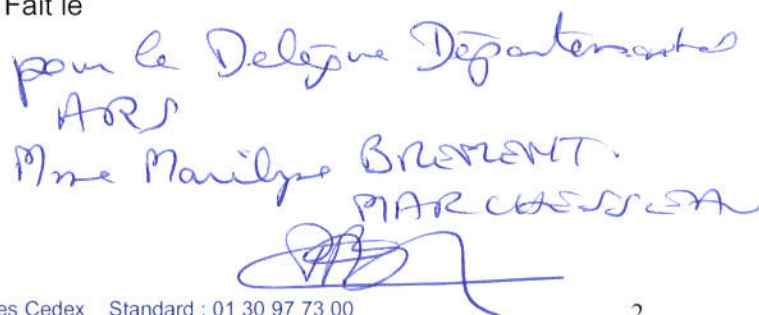 Fait le
pour le Délégué Départemental
ARS
Mme Marilyne BREMENT.
MARCHESSEAU
es Cedex Standard : 01 30 97 73 00
2